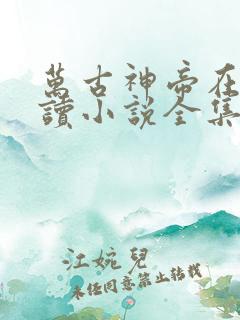 萬古神帝在
讀小說全集
江婉兒
未经同意禁止转载